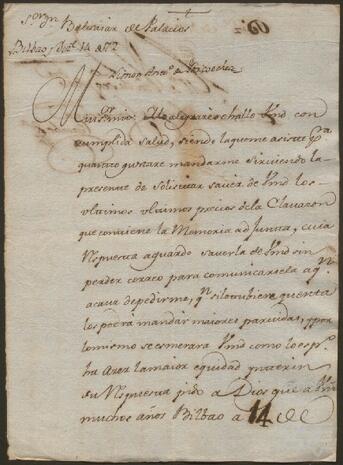 60
S.r Dn Balthasar de Palacios
Bilbao y Dec.e 14 de 72
Muy Sr mio: Me alegrare se halle Vmd con
cumplida salud, siendo la que me asiste p.a
quanto gustare mandarme sirviendo la
presente de solicitar savér de Vmd los
vltimos vltimos precios de la Clavazon
que contiene la Memoria adjunta, cuia
Respuesta aguardo saverla de Vmd sin
perder correo para comunicarsela a q.n
acava de pedirme, q.n si le tubiere quenta
les podra mandar maiores partidas, y por
lo mismo se esmerara Vmd como lo esp.o
ha azer la maior equidad
su Respuesta pido a Dios que a Vmd
muchos años Bilbao a 14